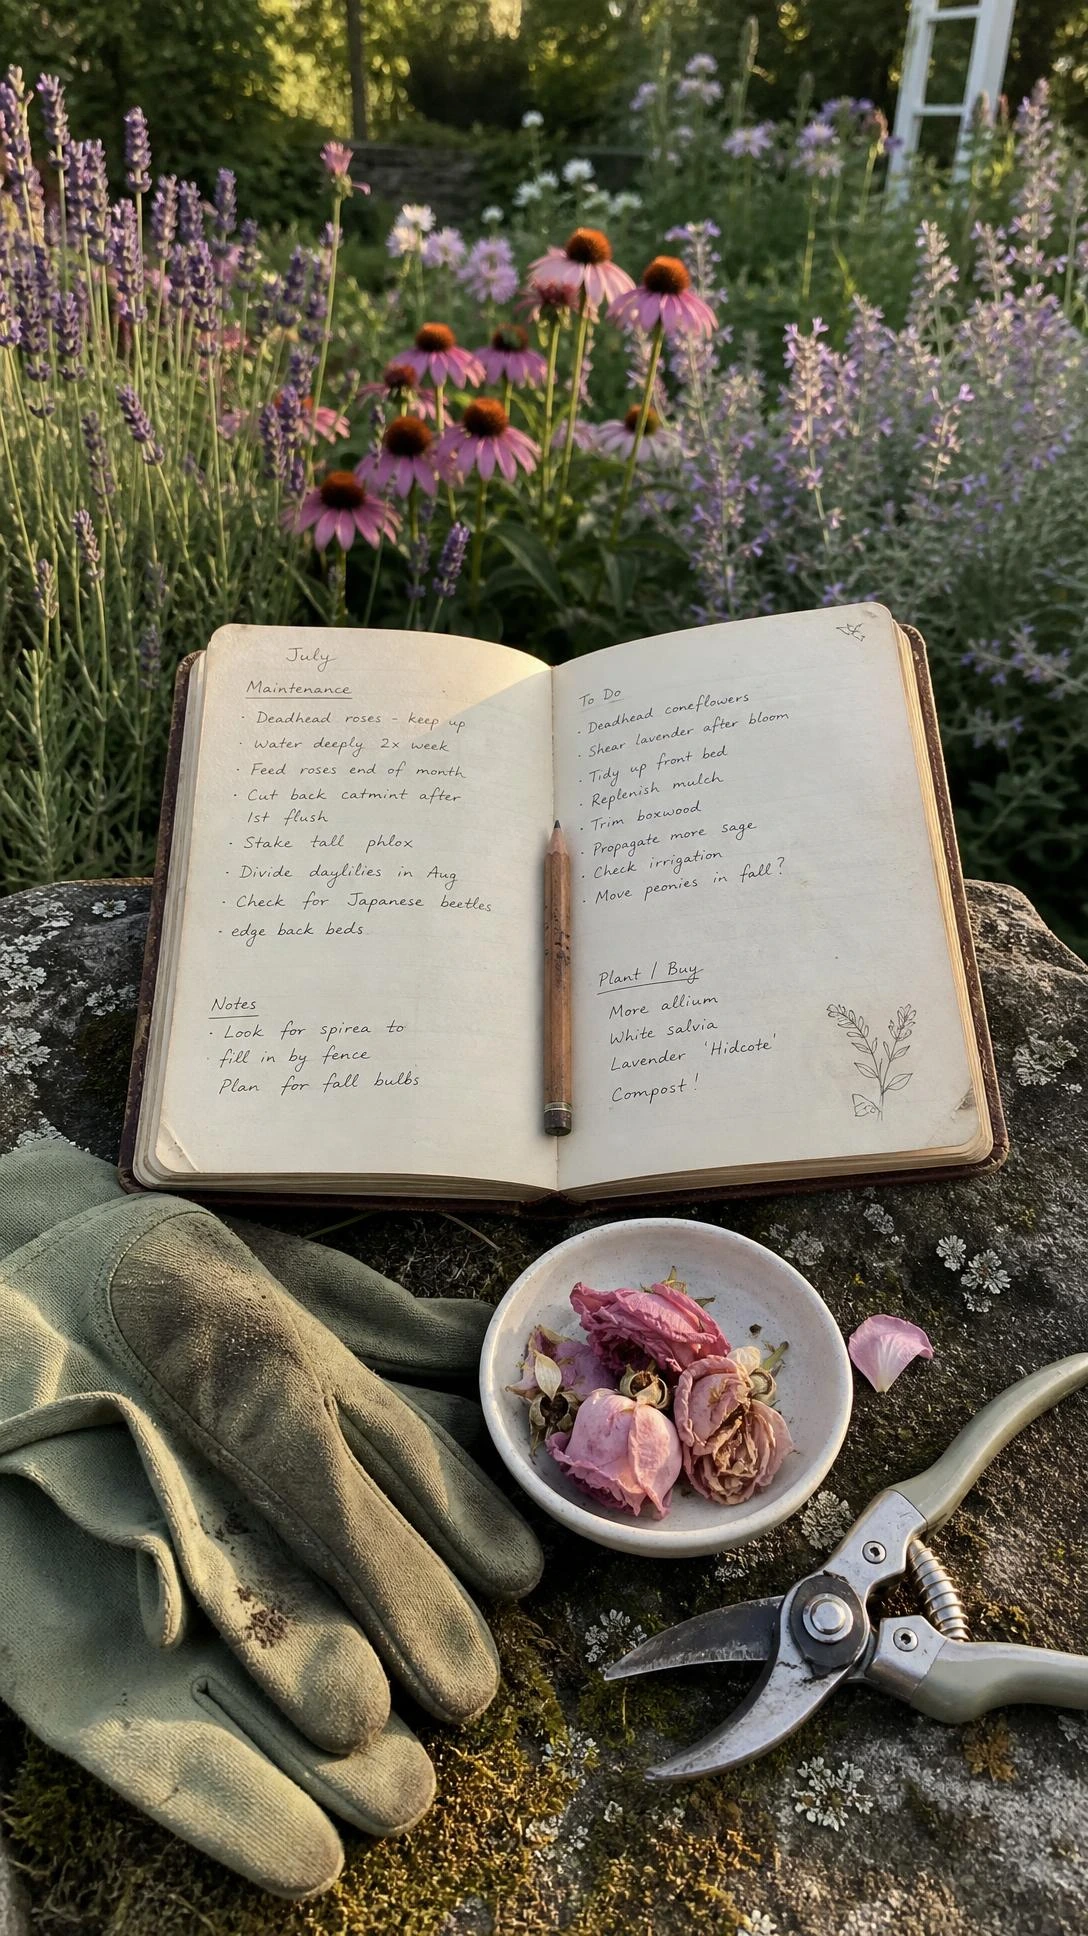 July
Maintenance
· Deadhead roses - keep up
· Water deeply 2x week
· Feed roses end of month
· Cut back catmint after
1st flush
· Stake tall phlox
· Divide daylilies in Aug
· Check for Japanese beetles
· edge back beds
Notes
· Look for spirea to
· fill in by fence
Plan for fall bulbs
To Do
· Deadhead coneflowers
· Shear lavender after bloom
· Tidy up front bed
· Replenish mulch
· Trim boxwood
· Propagate more sage
· Check irrigation
· Move peonies in fall?
Plant / Buy
More allium
White salvia
Lavender 'Hidcote'
Compost!